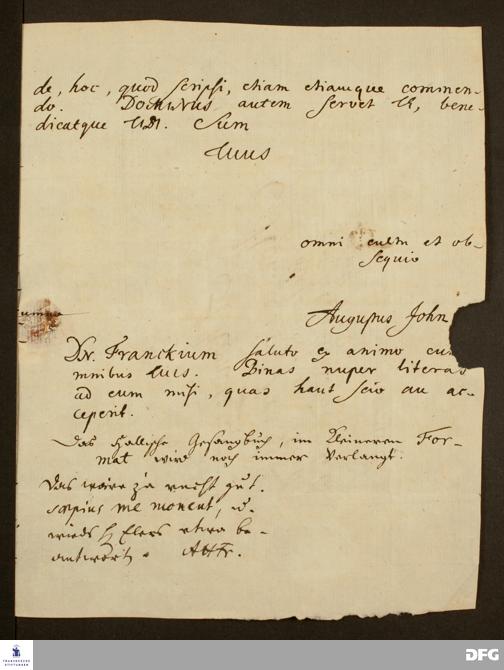 de, hoc, quod scripsi, etiam etiamque commen-
do. Dominus autem servet Te, bene-
dicatque Tibi. Sum
Tuus
omni cultu et ob-
sequio
Augustus John
Dn. Franckium saluto ex animo cum
omnibus Tuis. Binas nuper literas
ad eum misi, quas haut scio an ac-
ceperit.
Das Hallische Gesangbuch, im Kleineren For-
mat wird noch immer verlangt.
Das wäre ja recht gut.
saepius me monent,
wirds H Elers etwa be-
antwort. AHFr.
FRANCKESCHE
STIFTUNGEN
DFG